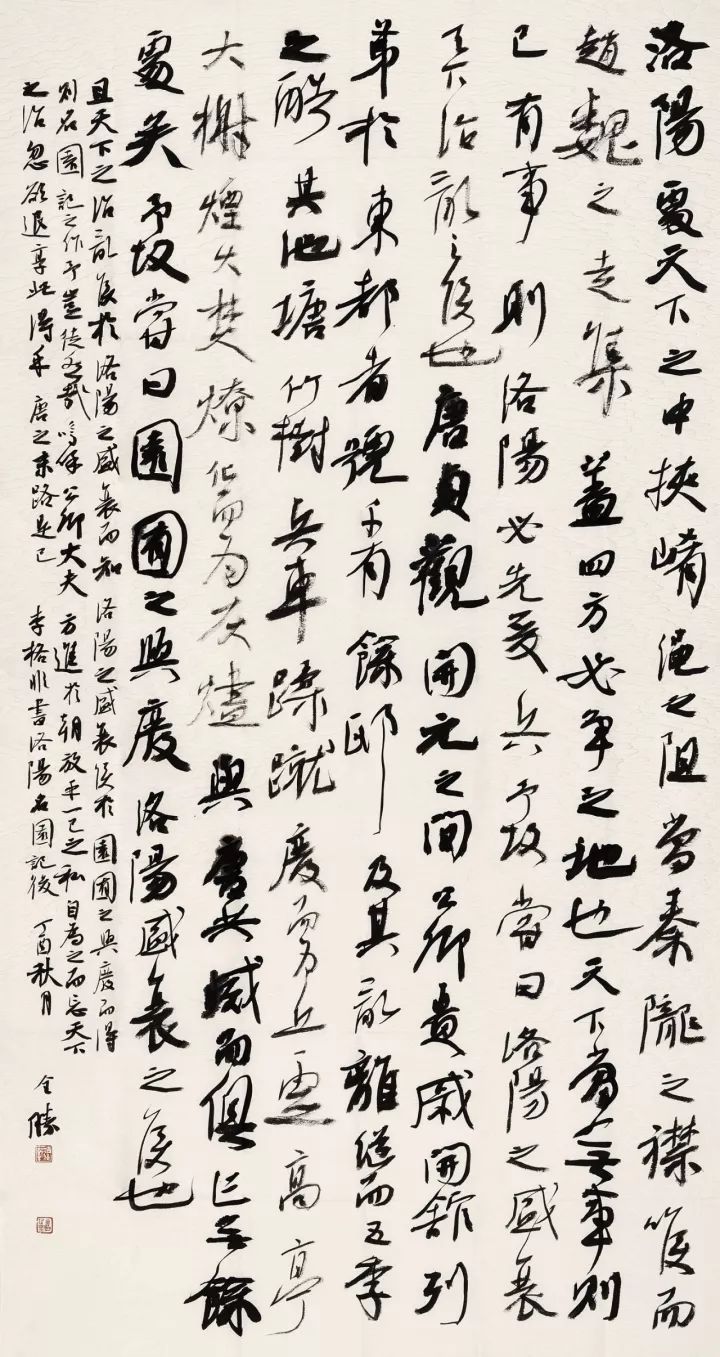 洛陽處天下之中挾崤澠之阻當秦隴之襟喉而
趙魏之走集蓋四方必爭之地也天下當無事則
已有事則洛陽必先受兵予故嘗曰洛陽之盛衰
天下治亂之候也唐貞觀開元之間公卿貴戚開館列
第於東都者號千有餘邸及其亂離繼而五季
之酷其池塘竹樹兵車蹂蹴廢而為丘墟高亭
大榭煙火焚燎化而為灰燼與唐共滅而俱亡無餘
處矣予故嘗曰園囿之興廢洛陽盛衰之候也
且天下之治亂候於洛陽之盛衰而知洛陽之盛衰候於園囿之興廢而得
則名園記之作予豈徒然哉嗚呼公卿大夫方進於朝放乎一己之私自為之而忘天下
之治忽欲退享此得乎唐之末路是已 李格非書洛陽名園記後 丁酉秋月
全勝